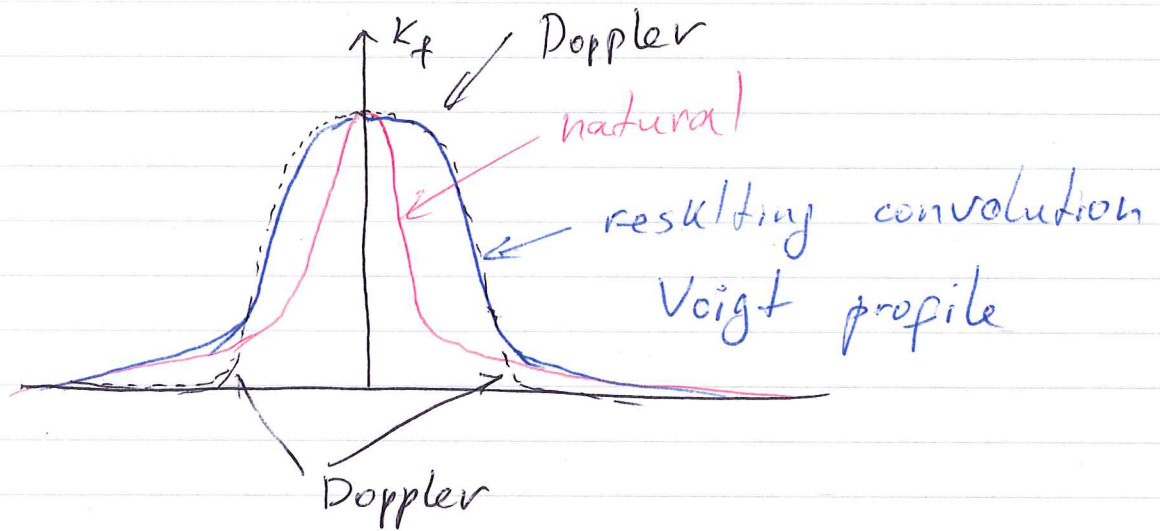 K_f
Doppler
natural
resulting convolution
Voigt profile
Doppler